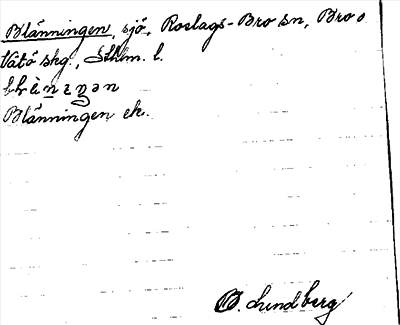 Blänningen, sjö, Roslags-Bro sn, Bro o
Vätö skg., Sthlm. l.
Blänningen ek.
O. Lundberg